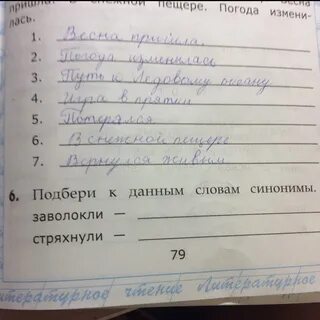 пришла. В снежной пещере. Погода измени-
лась.
1. Весна пришла.
2. Погода изменилась
3. Путь к Ледовому океану
4. Игра в прятки
5. Потерялся
6. В снежной пещере
7. Вернулся живым
6. Подбери к данным словам синонимы.
заволокли —
стряхнули —
79
Литературное чтение Литературное